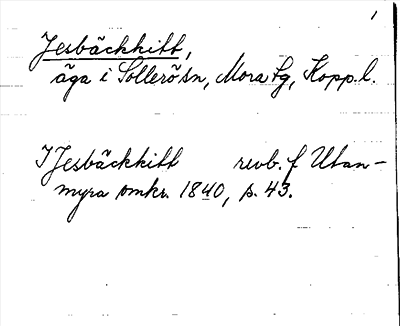 1
Jesbäckkitt,
äga i Sollerö sn, Mora tg, Kopp. l.
I Jesbäckkitt revb. f Utan-
myra omkr. 1840, s. 43.